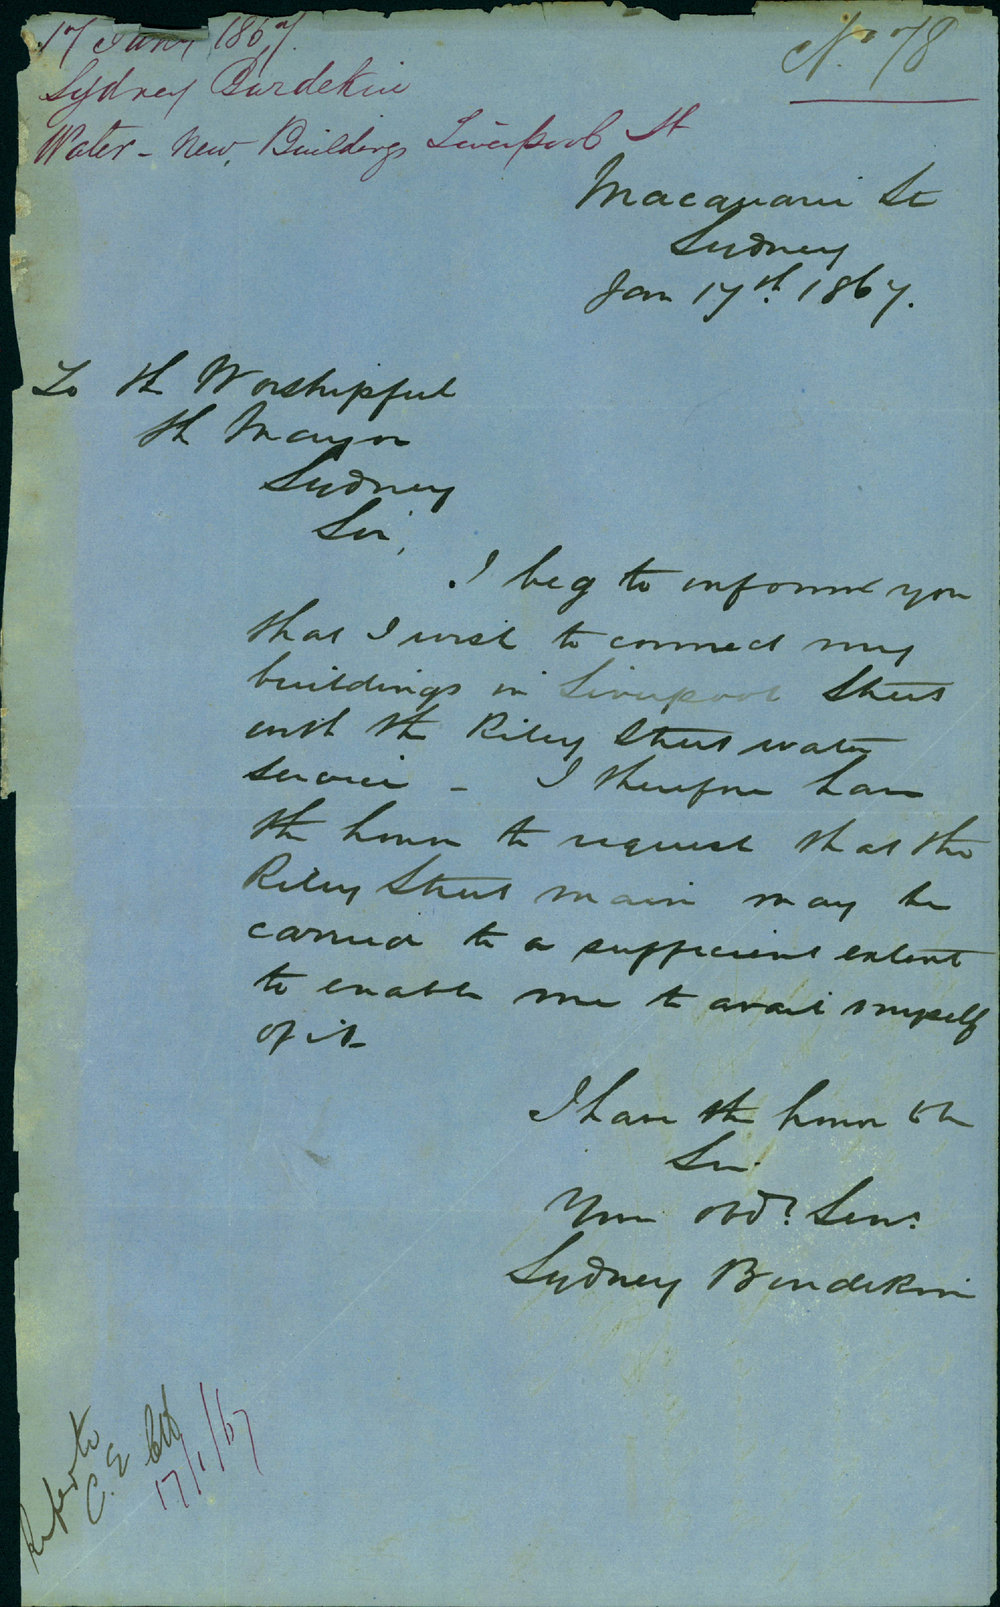 17 Jany 1867.
Sydney Burdekin
Water - New Buildings Liverpool St
No 78
Macquarie St
Sydney
Jan 17th. 1867.
To the Worshipful
the Mayor
Sydney
Sir,
I beg to inform you
that I wish to connect my
buildings in Liverpool Street
with the Riley Street water
service - I therefore have
the honor to request that the
Riley Street main may be
carried to a sufficient extent
to enable me to avail myself
of it -
I have the honor to be
Sir
Your obdt. Serv.
Sydney Burdekin
Refer to
C. E
17/1/67